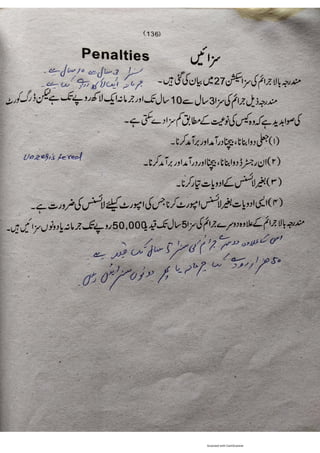 (136)
Penalties سزائیں
سزا 3 سال سے 10 سال ہے۔
جرمانہ ایک لاکھ روپے تک ہے۔
مندرجہ بالا جرائم کی سزا سیکشن 27 میں بیان کی گئی ہیں۔
مندرجہ ذیل جرائم کی سزا 3 سال سے 10 سال تک اور جرمانہ ایک لاکھ روپے تک ہے لیکن ڈرگ کورٹ
کی صوابدید ہے کہ وہ کیس کی نوعیت کے مطابق کم سزا دے سکتی ہے۔
(۱) جعلی دوا بنانا، بیچنا، درآمد اور برآمد کرنا۔
(۲) ان رجسٹرڈ دوا بنانا، بیچنا اور درآمد اور برآمد کرنا۔
(۳) بغیر لائسنس کے ادویات تیار کرنا۔
(۴) ایسی ادویات بغیر لائسنس امپورٹ کرنا جس کی امپورٹ کیلئے لائسنس کی ضرورت ہے۔
مندرجہ بالا جرائم کے علاوہ دوسرے جرائم کی سزا 5 سال تک قید یا 50,000 روپے تک جرمانہ یا دونوں سزائیں ہیں۔
اس کے علاوہ دوسرے جرائم کی سزا 5 سال تک قید ہے
50 ہزار روپے تک جرمانہ یا پھر دونوں سزائیں ہیں۔
Scanned with CamScanner